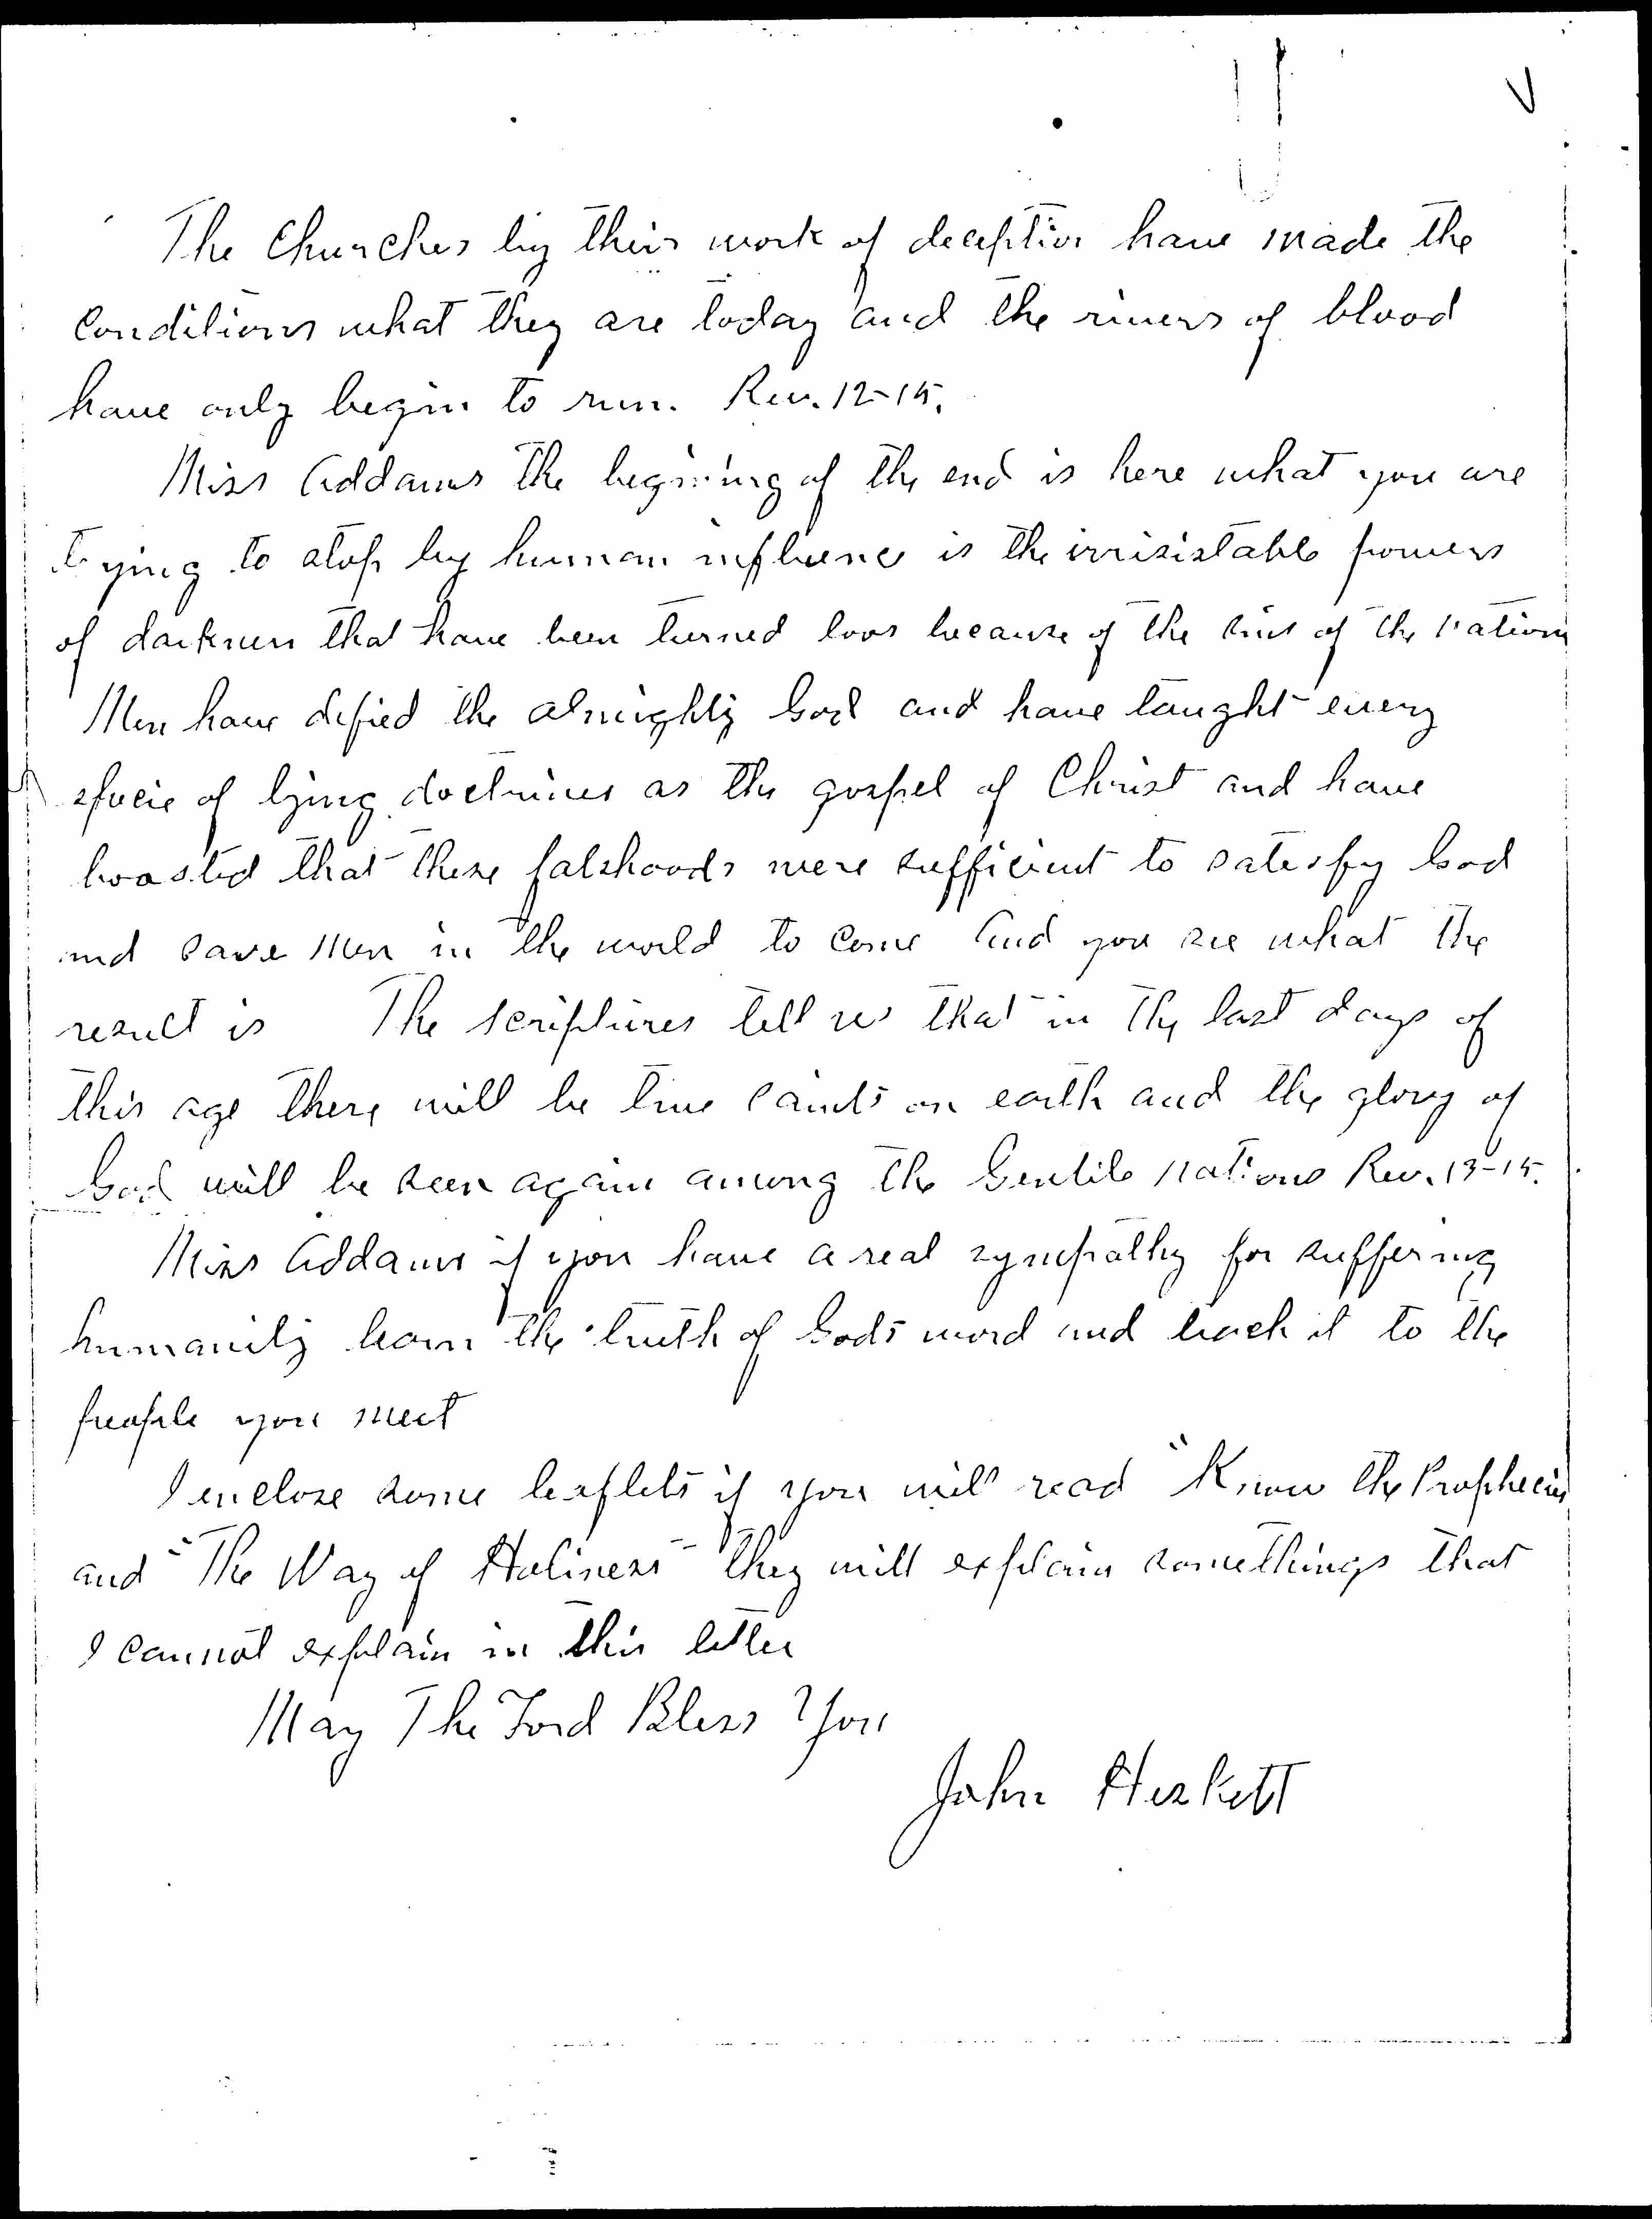 The Churches by their work of deception have made the
conditions what they are today and the rivers of blood
have only begin to run. Rev. 12-15.
Miss Addams the begining of the end is here what you are
trying to stop by human influence is the irrisistable powers
of darkness that have been turned loos because of the sins of the nations
Men have defied the almighty God and have taught every
specie of lying doctrines as the gospel of Christ and have
boasted that these falshoods were sufficient to satesfy God
and save men in the world to come And you see what the
result is The scriptures tell us that in the last days of
this age there will be true saints on earth and the glory of
God will be seen again among the Gentile nations Rev. 13-15.
Miss Addams if you have a real sympathy for suffering
humanity learn the truth of Gods word and teach it to the
people you meet
I enclose some leaflets if you will read "Know the Prophecies
and "The Way of Holiness" they will explain somethings that
I cannot explain in this letter
May The Lord Bless You
John Heskett